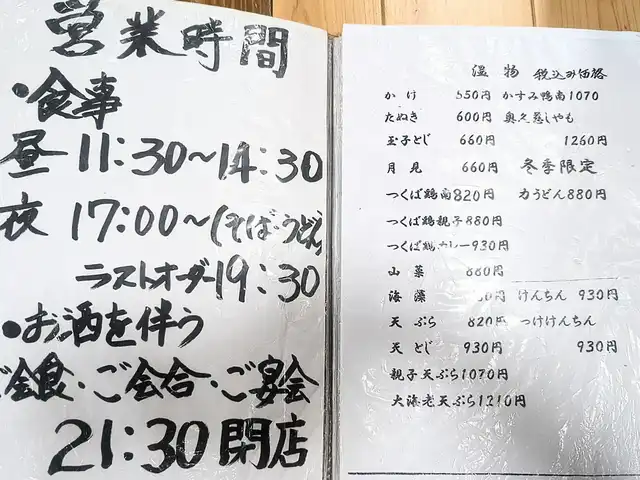 営業時間
・食事
昼 11:30~14:30
夜 17:00~(そば・うどん)
ラストオーダー19:30
・お酒を伴う
ご会食・ご会合・ご宴会
21:30閉店
温物 税込み価格
かけ 550円 かすみ鴨南1070
たぬき 600円 奥久慈しゃも
玉子とじ 660円 1260円
月見 660円 冬季限定
つくば鶏南820円 力うどん880円
つくば鶏親子880円
つくば鶏カレー930円
山菜 880円
海藻 円 けんちん 930円
天ぷら 820円 つけけんちん
天とじ 930円 930円
親子天ぷら1070円
大海老天ぷら1210円